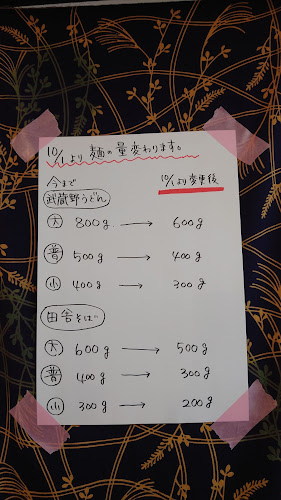 10/1より麺の量変わります。
今まで 10/1より変更後
武蔵野うどん
大 800g → 600g
普 500g → 400g
小 400g → 300g
田舎そば
大 600g → 500g
普 400g → 300g
小 300g → 200g